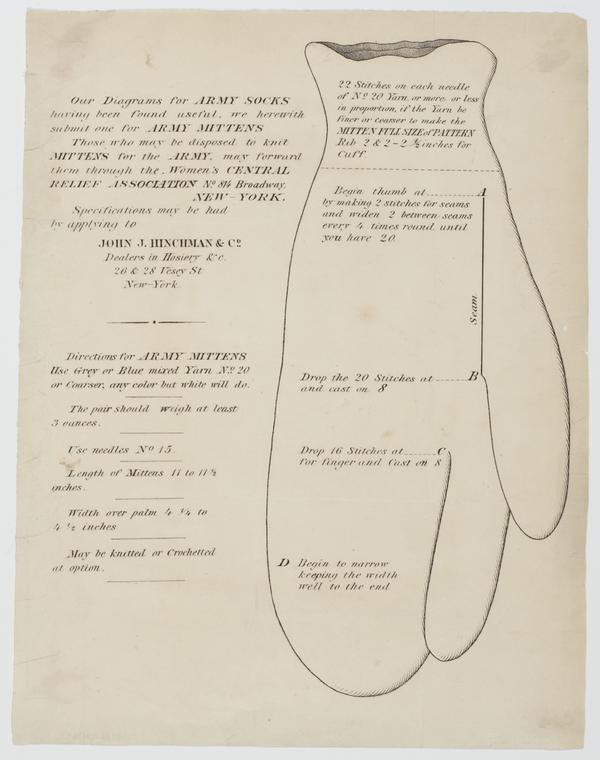 Our Diagrams for ARMY SOCKS
having been found useful, we herewith
submit one for ARMY MITTENS
Those who may be disposed to knit
MITTENS for the ARMY, may forward
them through the, Women's CENTRAL
RELIEF ASSOCIATION No 814 Broadway,
NEW-YORK.
Specifications may be had
by applying to
JOHN J. HINCHMAN & Co
Dealers in Hosiery &c.
26 & 28 Vesey St
New-York
Directions for ARMY MITTENS
Use Grey or Blue mixed Yarn No 20
or Coarser, any color but white will do.
The pair should weigh at least
3 ounces.
Use needles No 15.
Length of Mittens 11 to 11 ½
inches.
Width over palm 4 ¼ to
4 ½ inches
May be knitted or Crochetted
at option.
22 Stitches on each needle
of No 20 Yarn, or more, or less
in proportion, if the Yarn be
finer or coarser to make the
MITTEN FULL SIZE of PATTERN
Rib 2 & 2 - 2 ½ inches for
Cuff
Begin thumb at A
by making 2 stitches for seams
and widen 2 between seams
every 4 times round, until
you have 20.
Seam
Drop the 20 Stitches at B
and cast on 8
Drop 16 Stitches at C
for finger and Cast on 8
D Begin to narrow
keeping the width
well to the end